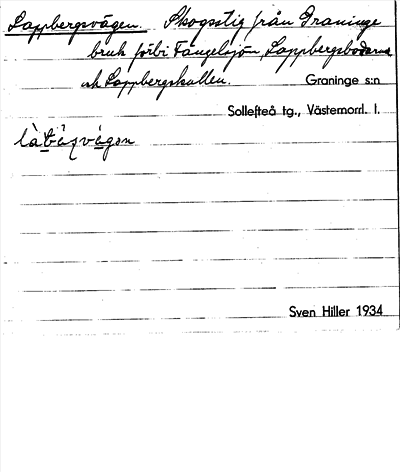 Lappbergsvägen. Skogsstig från Graninge
bruk förbi Fångelsjön, Lappbergsbodarna
och Lappbergskullen. Graninge s:n
Sollefteå tg., Västernorrl. l.
Sven Hiller 1934